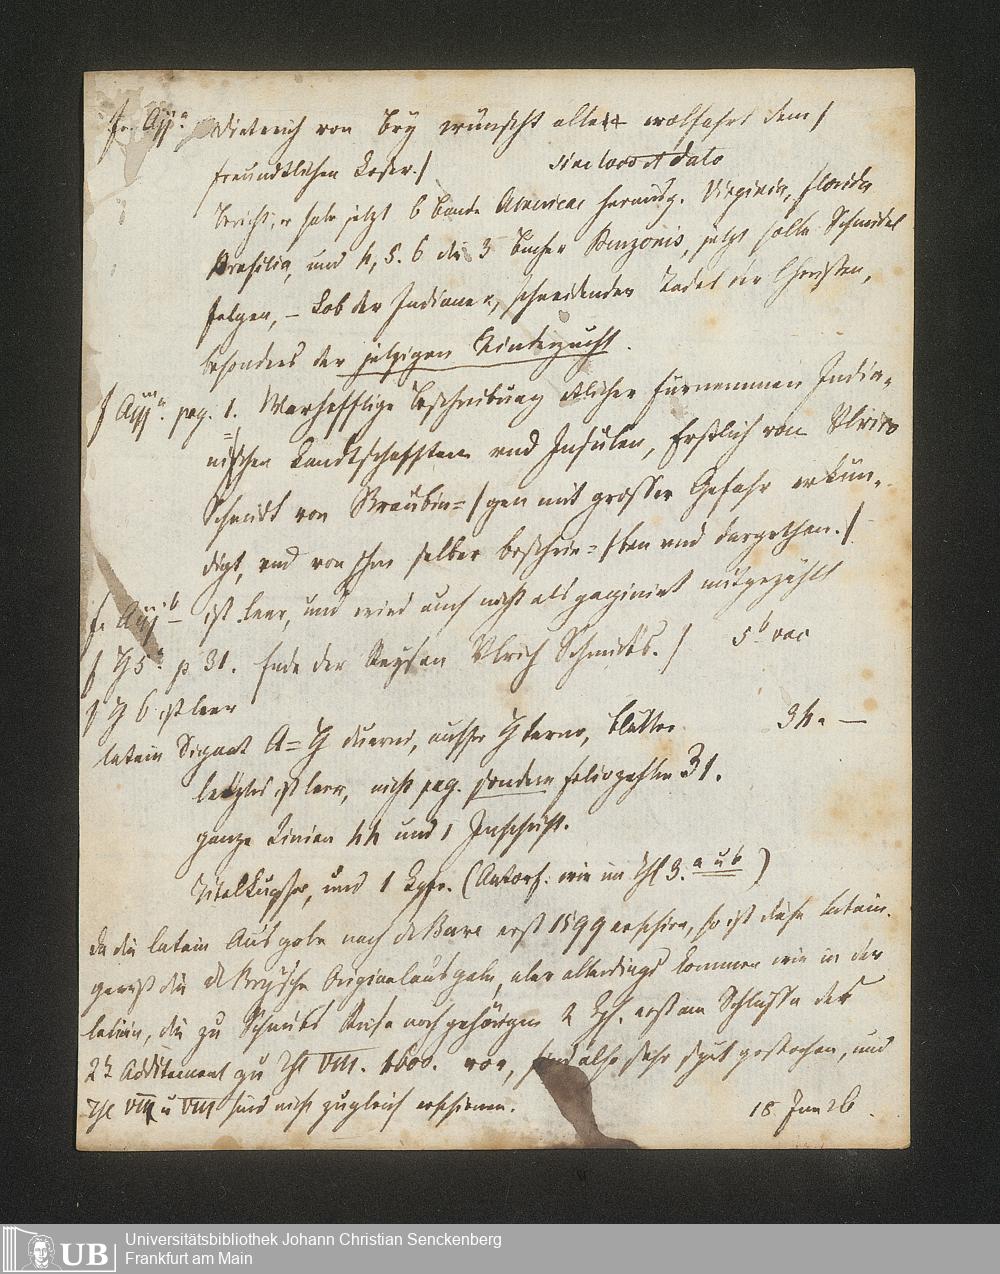 f. Aij a. Dietrich von Bry wünscht allen wolfahrt dem /
freundtlichen Leser. / sine loco et dato
Bericht, er habe jetzt 6 Bände Americae herausg. Virginia, Florida
Brasilia, und 4, 5. 6 die 3 Bücher Benzonis, jetzt solle Schmidel
folgen, – Lob der Indianer, schneidender Tadel der Christen,
besonders der jetzigen Kinderzucht.
f Aiij a. pag. 1. Warhafftige Beschreibung etlicher fürnemmen India-
nischen Landtschafften und Insulen, Erstlich von Ulrico
Schmidt von Straubin= / gen mit grosser Gefahr erkün-
digt, und von ihm selber beschrie= / ben und dargethan. /
f. Aiij b – ist leer, und wird auch nicht als paginirt mitgezählt
f H5 a. p 31. Ende der Reysen Ulrich Schmidts. / 5 b vac
f H 6 ist leer
latein Signat A=H duerni, ausser H terno, Blätter 34. –
letztes ist leer, nicht pag. sondern foliozahlen 31.
ganze Linien 44 und 1 Inschrift.
Titelkupfer, und 1 Kpfr. (Antorf: wie im Thl 3. a u b)
da die latein Ausgabe nach de Bure erst 1599 erschien, so ist diese latein.
gewiß die de Brysche Originalausgabe, aber allerdings kommen wie in der
latein, die zu Schmidts Reise noch gehörigen 2 Kpf. erst am Schlusse des
2t Additament zu Thl VIII. 1600. vor, sind also sehr spät gestochen, und
Thl VII u VIII sind nicht zugleich erschienen.
18 Jun 26.
UB
Universitätsbibliothek Johann Christian Senckenberg
Frankfurt am Main